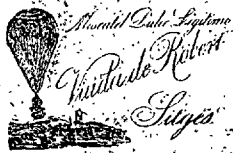 Moscatel Dulce Legitimo
Viuda de Robert
Sitges